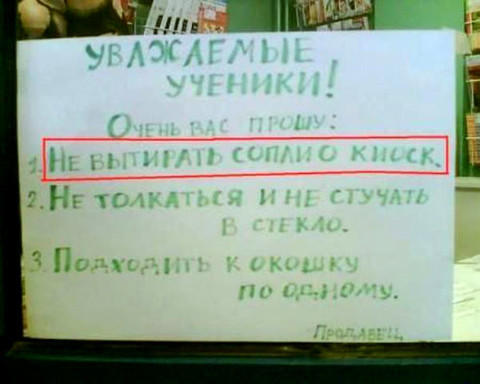 УВАЖАЕМЫЕ
УЧЕНИКИ!
ОЧЕНЬ ВАС ПРОШУ:
1. НЕ ВЫТИРАТЬ СОПЛИ О КИОСК.
2. НЕ ТОЛКАТЬСЯ И НЕ СТУЧАТЬ
В СТЕКЛО.
3. ПОДХОДИТЬ К ОКОШКУ
ПО ОДНОМУ.
ПРОДАВЕЦ